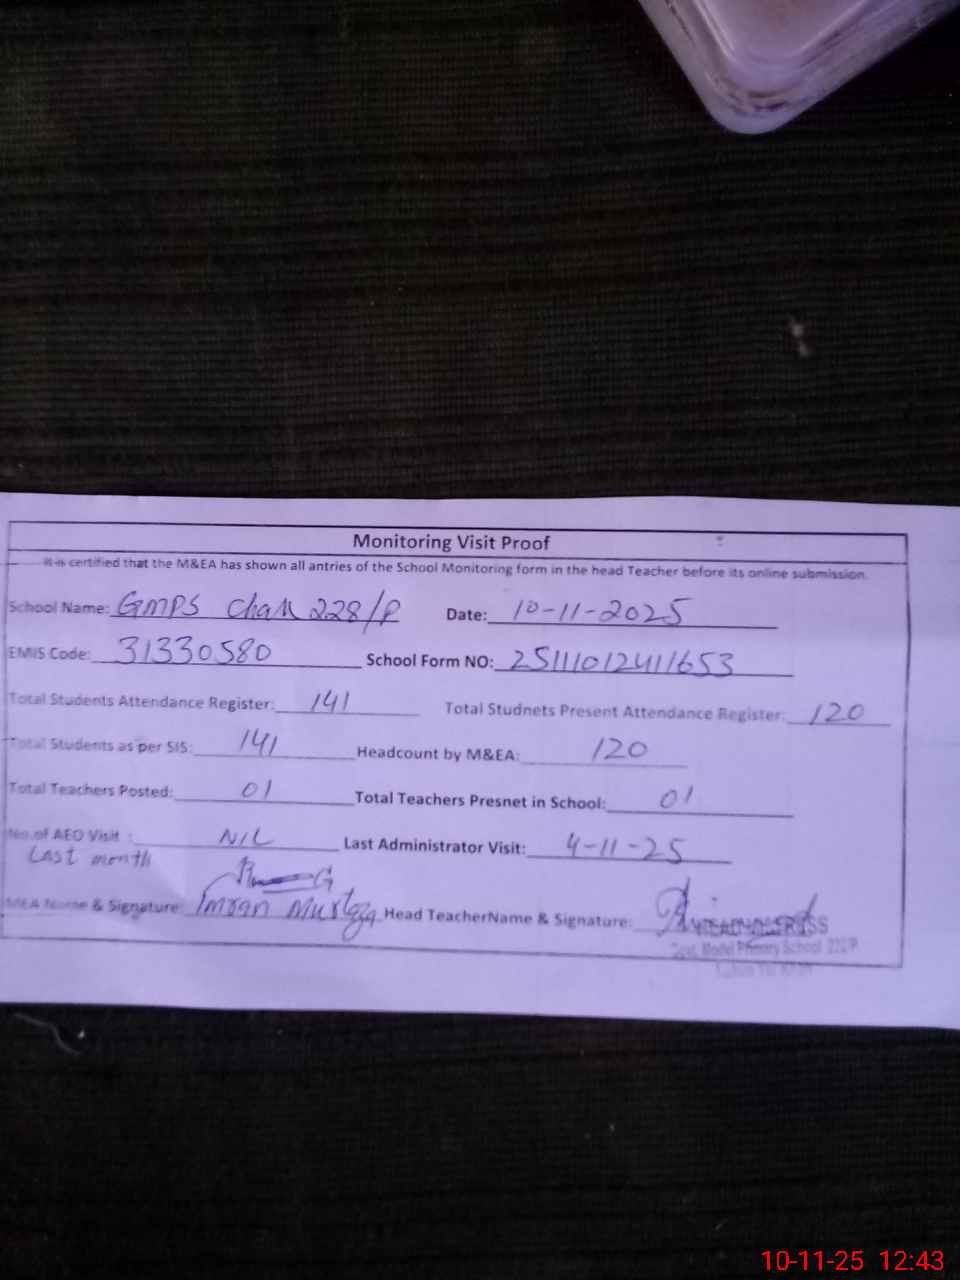 Monitoring Visit Proof
It is certified that the M&EA has shown all antries of the School Monitoring form in the head Teacher before its online submission.
School Name: GMPS Chak 228/P Date: 10-11-2025
EMIS Code: 31330580 School Form NO: 25111012411653
Total Students Attendance Register: 141 Total Studnets Present Attendance Register: 120
Total Students as per SIS: 141 Headcount by M&EA: 120
Total Teachers Posted: 01 Total Teachers Presnet in School: 01
No.of AEO Visit : NIL Last Administrator Visit: 4-11-25
Last month
MEA Name & Signature: Imran Murtaza Head TeacherName & Signature:
Govt. Model Primary School 228/P
10-11-25 12:43